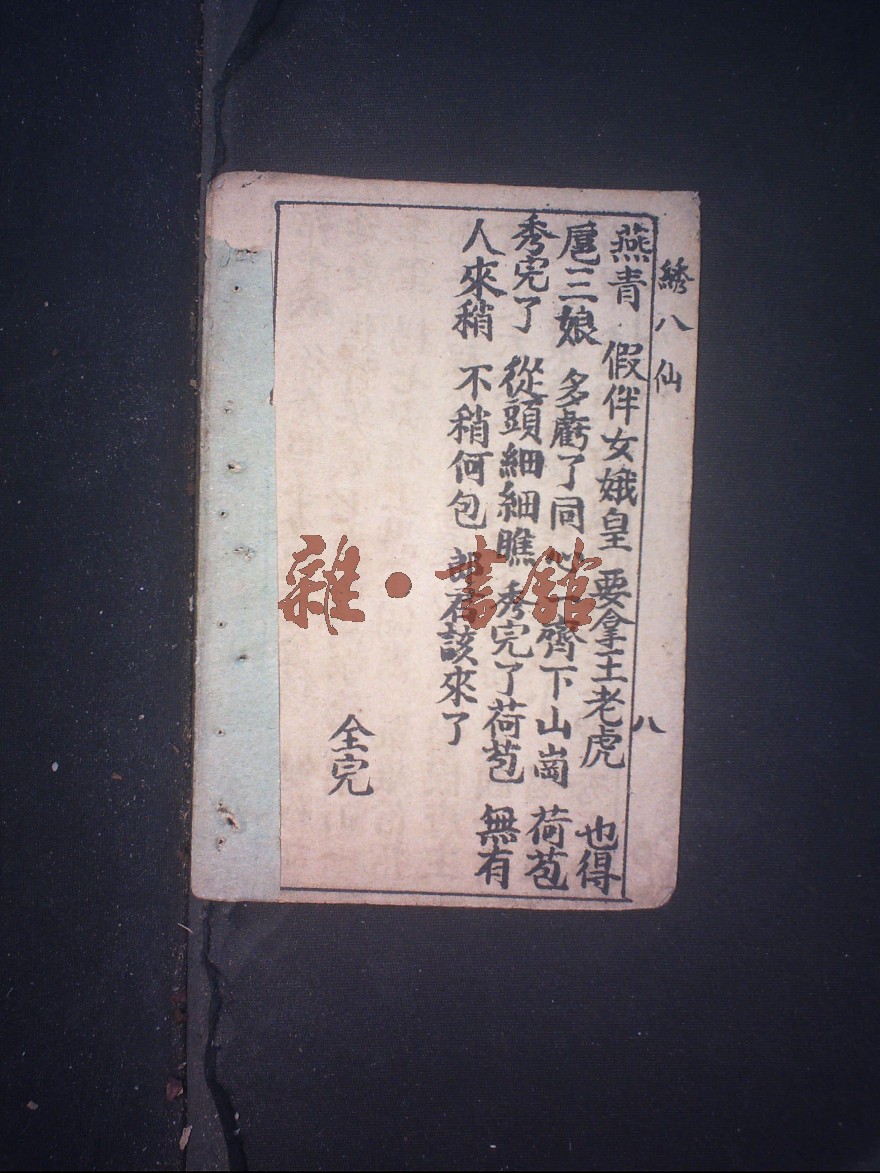 綉八仙
八
燕青 假佯女娥皇 要拿王老虎 也得
扈三娘 多虧了同心一齊下山崗 荷苞
秀完了 從頭細細瞧 秀完了荷苞 無有
人來稍 不稍何包 君該來了
全完
雜·書舘